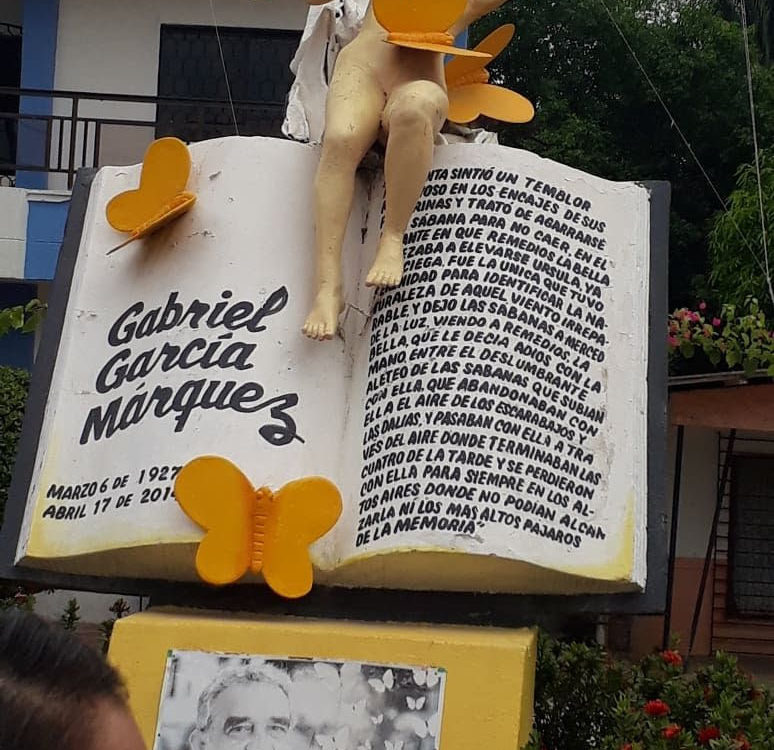 Gabriel
García
Márquez
MARZO 6 DE 1927
ABRIL 17 DE 2014
SINTIÓ UN TEMBLOR
EN LOS ENCAJES DE SUS
Y TRATÓ DE AGARRARSE
SÁBANA PARA NO CAER, EN EL
EN QUE REMEDIOS, LA BELLA
A ELEVARSE. URSULA, YA
CIEGA, FUE LA UNICA QUE TUVO
PARA IDENTIFICAR LA NA-
TURALEZA DE AQUEL VIENTO IRREPA-
RABLE, Y DEJO LAS SABANAS A MERCED
DE LA LUZ, VIENDO A REMEDIOS, LA
BELLA, QUE LE DECIA ADIOS CON LA
MANO, ENTRE EL DESLUMBRANTE
ALETEO DE LAS SABANAS QUE SUBIAN
CON ELLA, QUE ABANDONABAN CON
ELLA EL AIRE DE LOS ESCARABAJOS Y
LAS DALIAS, Y PASABAN CON ELLA A TRA
VES DEL AIRE DONDE TERMINABAN LAS
CUATRO DE LA TARDE Y SE PERDIERON
CON ELLA PARA SIEMPRE EN LOS AL-
TOS AIRES DONDE NO PODIAN ALCAN
ZARLA NI LOS MAS ALTOS PAJAROS
DE LA MEMORIA"